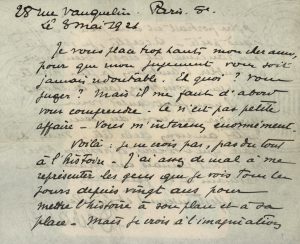 28 rue Vauquelin. Paris. 5e.
Le 8 mai 1921
Je vous place trop haut, mon cher ami,
pour que mon jugement vous soit
jamais redoutable. Et quoi ? vous
juger ? Mais il me faut d'abord
vous comprendre. Ce n'est pas petite
affaire. Vous m'intéressez énormément.
Voilà : je ne crois pas, pas du tout
à l'histoire. J'ai assez de mal à me
représenter les gens que je vois tous les
jours depuis vingt ans pour
mettre l'histoire à son plan et à sa
place. Mais je crois à l'imagination